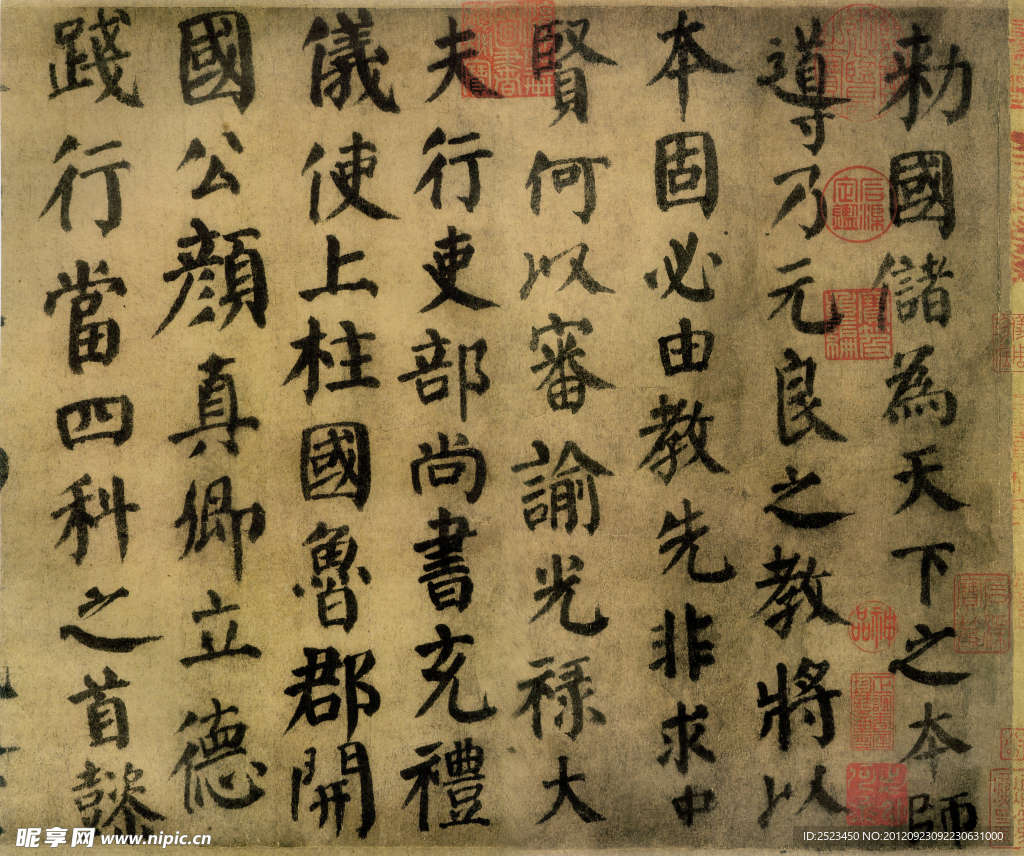 勑國儲為天下之本師
導乃元良之教將以
本固必由教先非求中
賢何以審諭光祿大
夫行吏部尚書充禮
儀使上柱國魯郡開
國公顏真卿立德
踐行當四科之首懿
神品
昵享网 www.nipic.cn
ID:2523450 NO:20120923092230631000